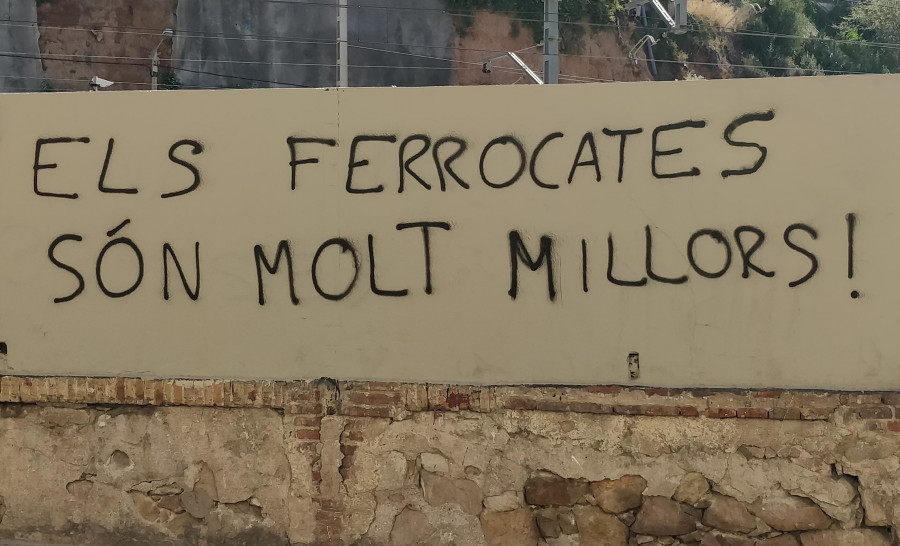 ELS FERROCATES
SÓN MOLT MILLORS!